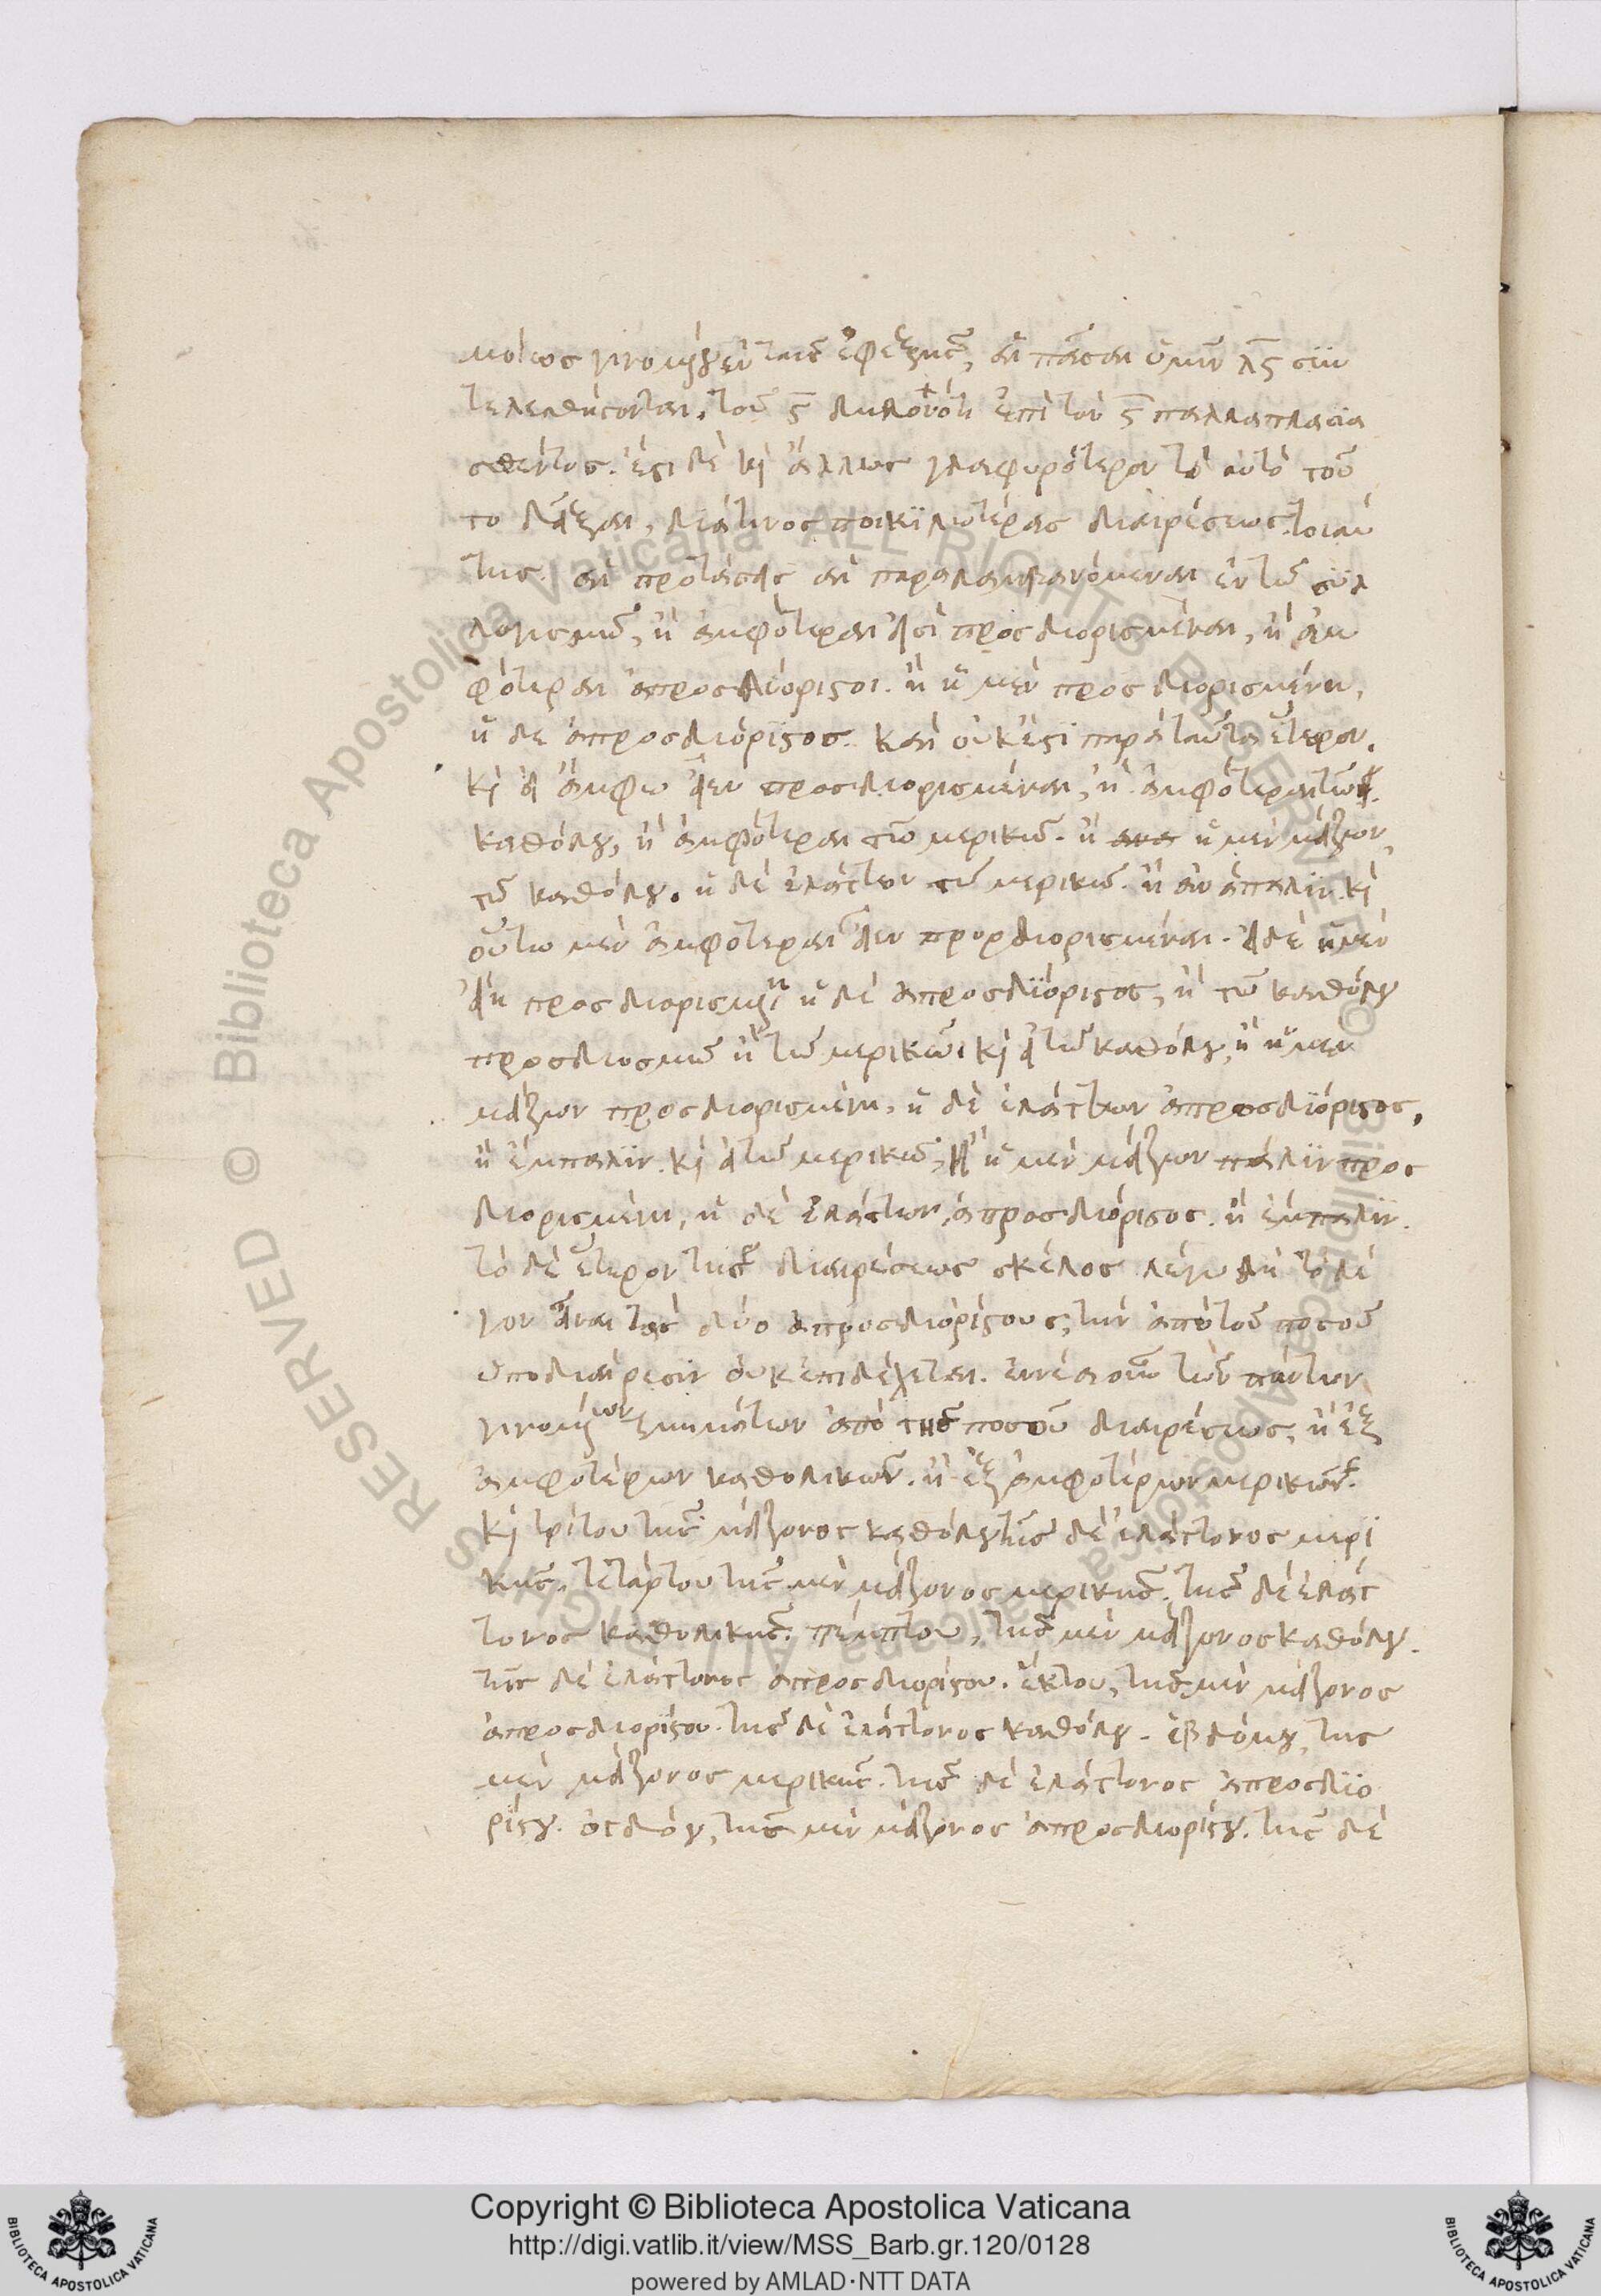 μοίως γινομένου ἐν ταῖς ἐφεξῆς, αἱ πᾶσαι ὑμῖν λς συν
τελεσθήσονται. τοῦ ς δηλονότι ἐπὶ τὸν ς πολλαπλασια
σθέντος. ἔστι δὲ καὶ ἄλλως γλαφυρότερον τὸ αὐτὸ τοῦ
το δεῖξαι, διά τινος ποικιλωτέρας διαιρέσεως τοιαύ
της. αἱ προτάσεις αἱ παραλαμβανόμεναι ἐν τῷ συλ
λογισμῷ, ἢ ἀμφότεραι εἰσὶ προσδιορισμέναι, ἢ ἀμ
φότεραι ἀπροσδιόριστοι. ἢ ἡ μὲν προσδιορισμένη,
ἡ δὲ ἀπροσδιόριστος. καὶ οὐκ ἔστι παρὰ ταῦτα ἕτερον.
καὶ εἰ ἄμφω εἶεν προσδιορισμέναι, ἢ ἀμφότεραι τῷ
καθόλου, ἢ ἀμφότεραι τῷ μερικῷ. ἢ ἡ μὲν μείζων
τῷ καθόλου. ἡ δὲ ἐλάττων τῷ μερικῷ. ἢ ἀνάπαλιν. καὶ
οὕτω μὲν ἀμφότεραι εἶεν προσδιορισμέναι. εἰ δὲ ἡ μὲν
εἴη προσδιορισμένη ἡ δὲ ἀπροσδιόριστος, ἢ τῷ καθόλου
προσδιοσμῷ ἢ τῷ μερικῷ καὶ εἰ τῷ καθόλου, ἢ ἡ μὲν
μείζων προσδιορισμένη, ἡ δὲ ἐλάττων ἀπροσδιόριστος,
ἢ ἔμπαλιν. καὶ εἰ τῷ μερικῷ, ἢ ἡ μὲν μείζων πάλιν προσ
διορισμένη, ἡ δὲ ἐλάττων, ἀπροσδιόριστος. ἢ ἔμπαλιν.
τὸ δὲ ἕτερον τῆς διαιρέσεως σκέλος λέγω δὴ τὸ λέ
γον εἶναι τὰς δύο ἀπροσδιορίστους, τὴν ἀπὸ τοῦ ποσοῦ
ὑποδιαίρεσιν οὐκ ἐπιδέχεται. ἐννέα οὖν τῶν πάντων
γινομένων τμημάτων ἀπὸ τῆς ποσοῦ διαιρέσεως, ἢ ἐξ
ἀμφοτέρων καθολικῶν. ἢ ἐξ ἀμφοτέρων μερικῶν.
καὶ τρίτου τῆς μείζονος καθόλου τῆς δὲ ἐλάττονος μερι
κῆς. τετάρτου τῆς μὲν μείζονος μερικῆς. τῆς δὲ ἐλάτ
τονος καθολικῆς. πέμπτου, τῆς μὲν μείζονος καθόλου.
τῆς δὲ ἐλάττονος ἀπροσδιορίστου. ἕκτου, τῆς μὲν μείζονος
ἀπροσδιορίστου. τῆς δὲ ἐλάττονος καθόλου. ἑβδόμου, τῆς
μὲν μείζονος μερικῆς. τῆς δὲ ἐλάττονος ἀπροσδιο
ρίστου. ὀγδόου, τῆς μὲν μείζονος ἀπροσδιορίστου. τῆς δὲ
Copyright © Biblioteca Apostolica Vaticana
http://digi.vatlib.it/view/MSS_Barb.gr.120/0128
powered by AMLAD·NTT DATA